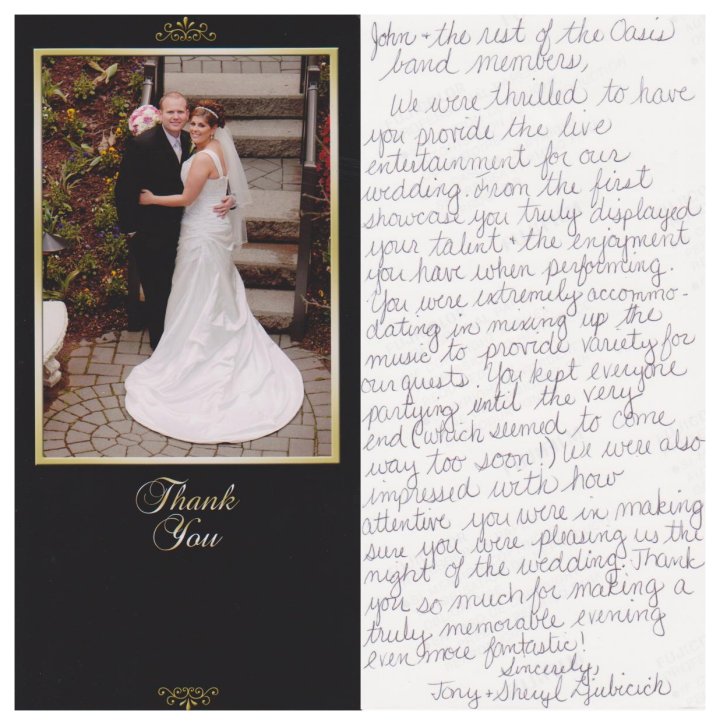 Thank
You
John + the rest of the Oasis
band members,
We were thrilled to have
you provide the live
entertainment for our
wedding. From the first
showcase you truly displayed
your talent + the enjoyment
you have when performing.
You were extremely accommo-
dating in mixing up the
music to provide variety for
our guests. You kept everyone
partying until the very
end (which seemed to come
way too soon!) We were also
impressed with how
attentive you were in making
sure you were pleasing us the
night of the wedding. Thank
you so much for making a
truly memorable evening
even more fantastic!
Sincerely,
Tony + Sheryl Ljubicich